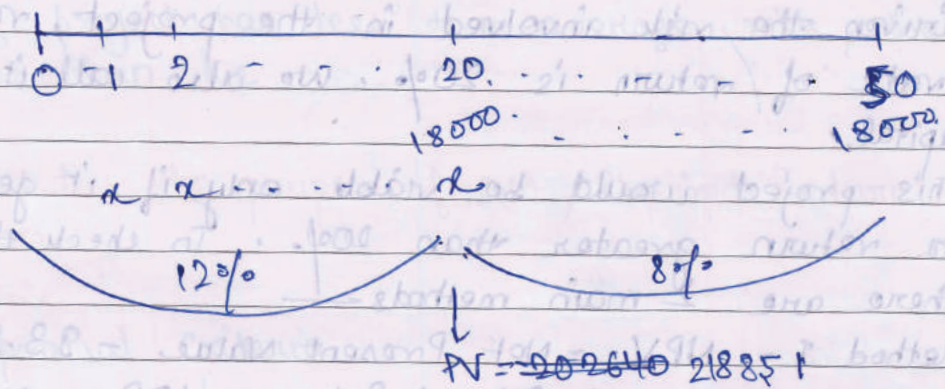 0 1 2 - - . 20. . . . . . 50
18000. . . - - . . 18000.
x x - - . . . . x
12% 8%
PV = 202640 218851